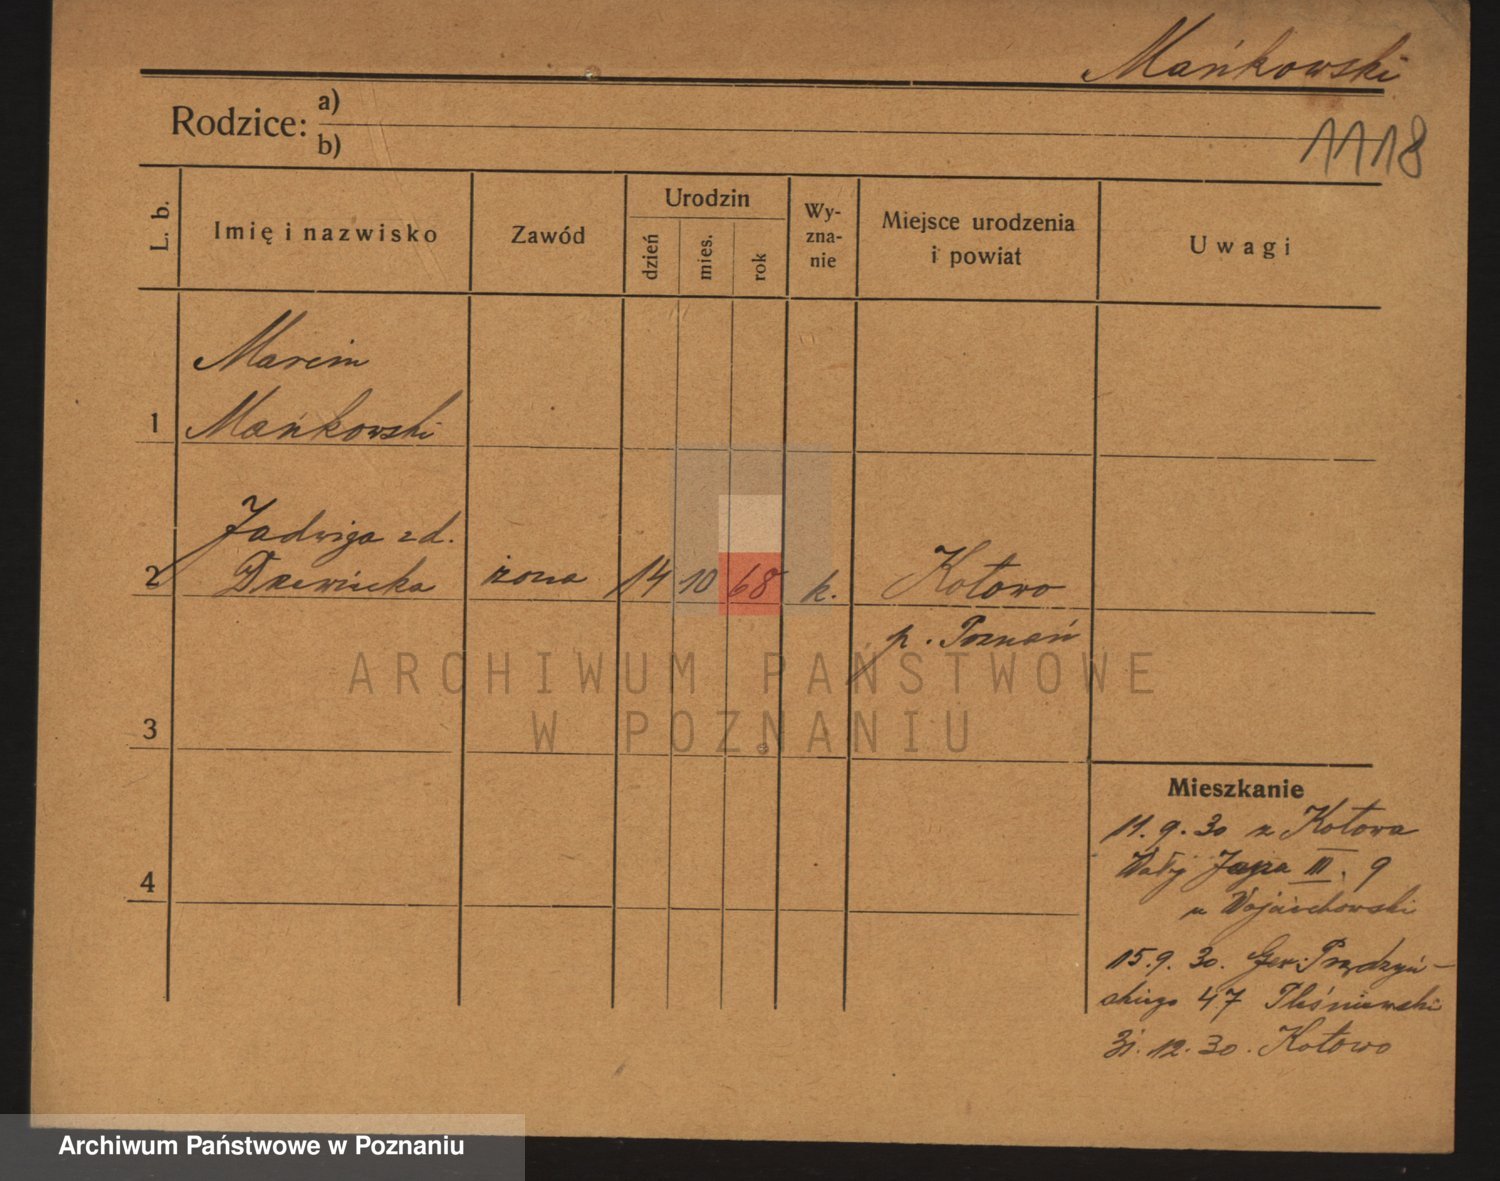 Mańkowski
Rodzice:
a)
b)
1118
L. b.
Imię i nazwisko
Zawód
Urodzin
dzień
mies.
rok
Wy-
zna-
nie
Miejsce urodzenia
i powiat
Uwagi
1
Marcin
Mańkowski
2
Jadwiga zd.
Drzewiecka
żona
14
10
68
k.
Kotowo
p. Poznań
3
4
Mieszkanie
11.9.30 z Kotowa
Wały Jana III. 9
u Wojciechowski
15.9.30. Gen. Prądzyń-
skiego 47 Pleśniewski
31.12.30. Kotowo
ARCHIWUM PAŃSTWOWE
W POZNANIU
Archiwum Państwowe w Poznaniu